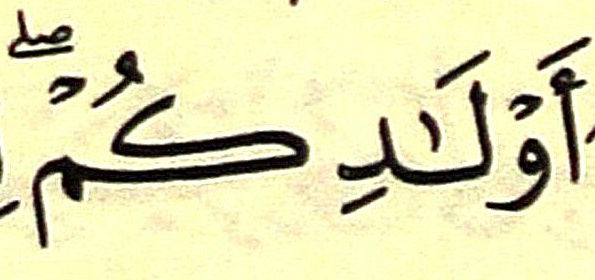 أَوْلَٰدِكُمْۖ